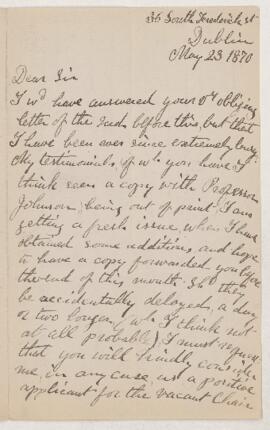 36 South Frederick St
Dublin
May 23 1870
Dear Sir
I wd have answered your obliging
letter of the before this but that
I have been ever since extremely busy.
My testimonials, of wh you have I
think seen a copy with Professor
Johnson, being out of print, I am
getting a fresh issue, when I have
obtained some additions and hope
to have a copy forwarded you before
the end of this month. Shd they
be accidentally delayed, a day
or two longer (wh I think not
at all probable) I must request
that you will kindly consider
me, in any case, as a positive
applicant for the vacant Chair